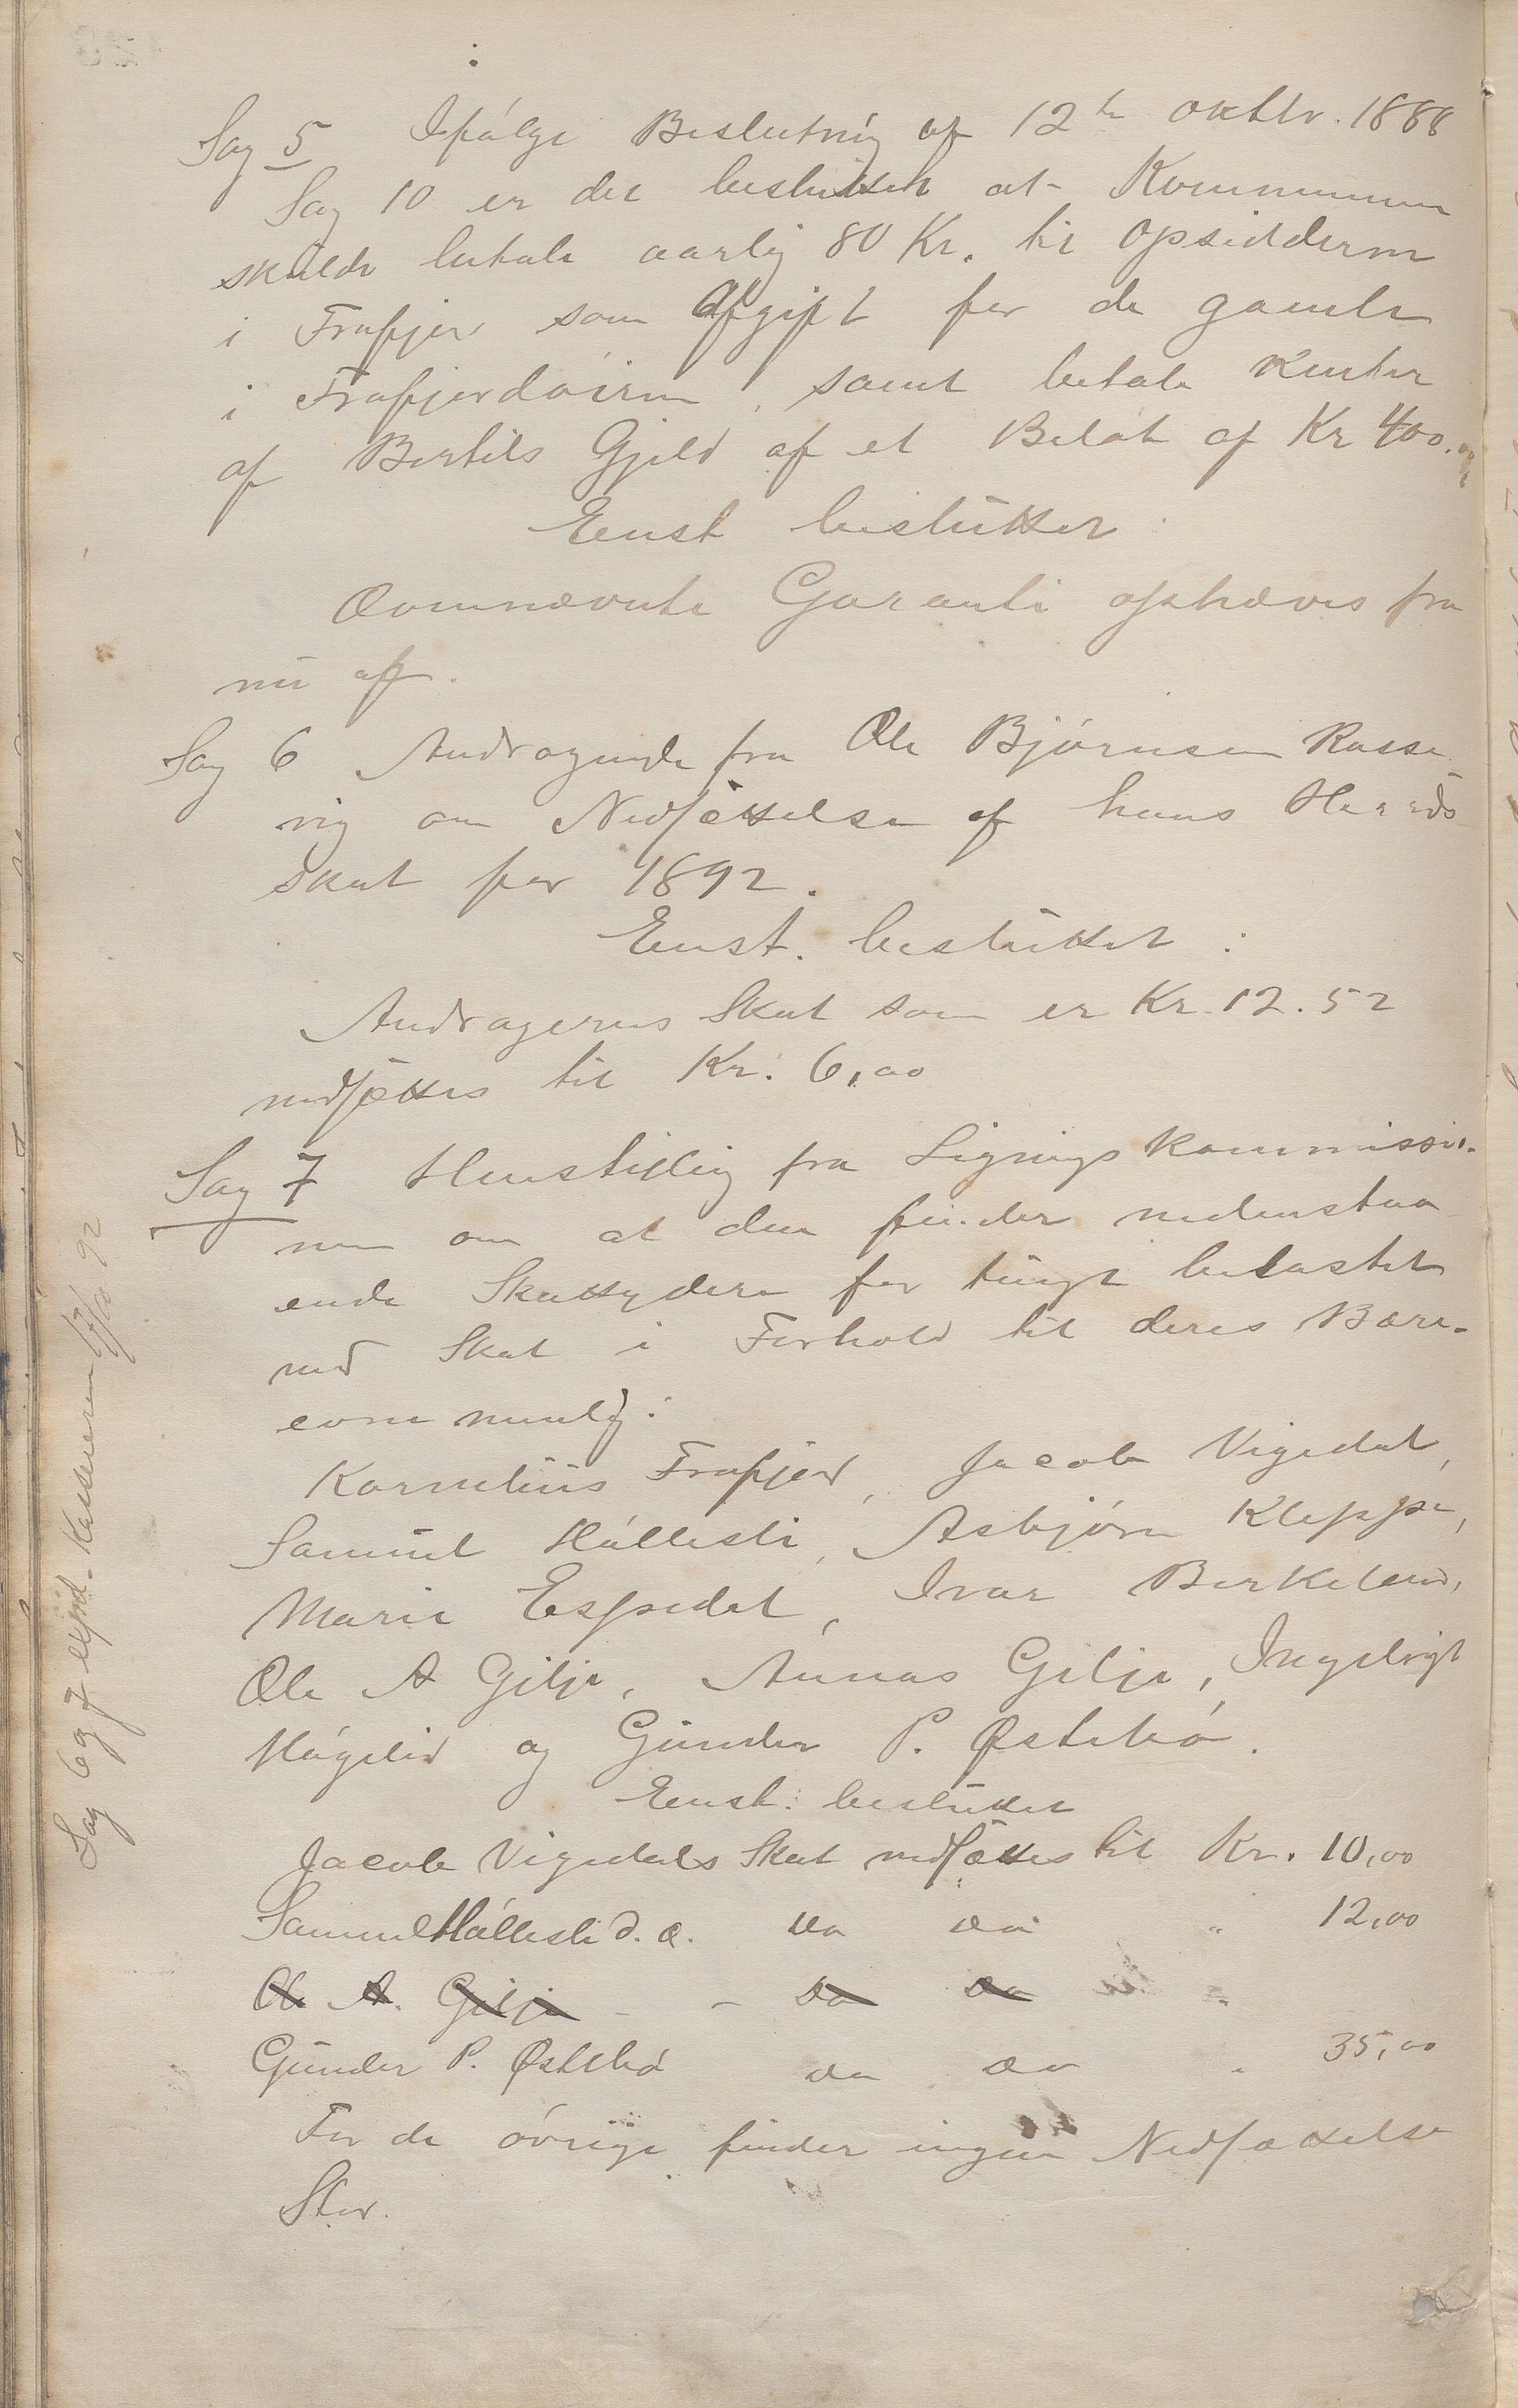 Sag 5 Ifølge Beslutning af 12te oktbr. 1888
Sag 10 er det besluttet at Kommunen
skulde betale aarlig 80 Kr. til Opsidderne
i Frafjor som Afgift for de gamle
i Frafjordøiren, samt betale Renter
af Bertils Gjeld af et Beløb af Kr 400.00
Eenst besluttet:
Ovennævnte Garanti ophæves fra
nu af.
Sag 6 Andragende fra Ole Bjørnsen Rosse-
vig om Nedsættelse af hans Herreds
skat for 1892.
Eenst. besluttet:
Andragerens Skat som er Kr. 12.52
nedsættes til Kr. 6,00
Sag 7 Henstilling fra Lignings Kommissio-
nen om at den finder nedenstaa
ende Skatteydere for tungt belastet
med Skat i Forhold til deres Bære-
evne nemlig:
Kornelius Frafjord, Jacob Vigedal,
Samuel Høllesli, Asbjørn Kleppe,
Marie Espedal, Ivar Birkeland,
Ole A Gilje, Aunas Gilje, Ingebrigt
Høgelid og Gunder P. Østebø.
Eenst. besluttet
Jacob Vigedals Skat nedsættes til Kr. 10,00
Samuel Høllesli d. o. do do " 12,00
Ole A. Gilje - - do do "
Gunder P. Østebø do do " 35,00
For de øvrige finder ingen Nedsættelse
Sted.
Sag 6 og 7 expd. Kassereren 17/10 92